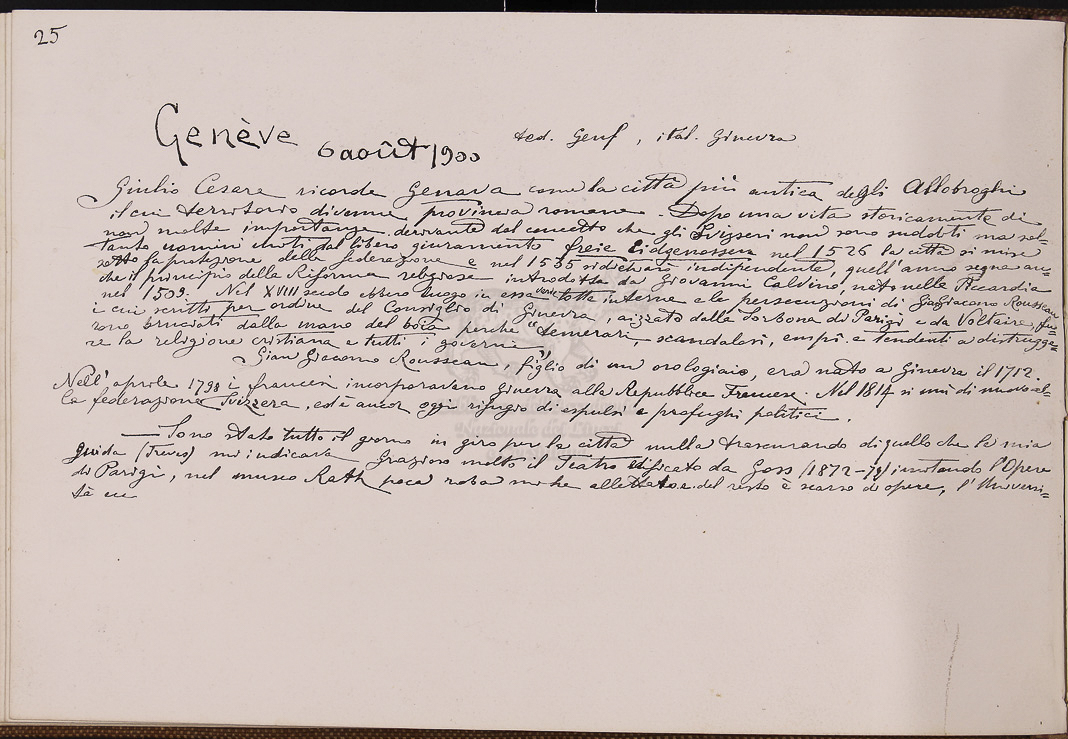 25
Genève 6 août 1900 ted. Genf, ital. Ginevra
Giulio Cesare ricorda Genava come la città più antica degli Allobroghi
il cui territorio divenne provincia romana. Dopo una vita storicamente di
non molta importanza, derivante dal concetto che gli Svizzeri non sono sudditi ma sol=
tanto uomini uniti dal libero giuramento freie Eidgenossen nel 1526 la città si mise
sotto la protezione della federazione e nel 1535 si dichiarò indipendente, quell'anno segna an=
che il principio della Riforma religiosa introdotta da Giovanni Calvino nato nella Piccardia
nel 1509. Nel XVIII secolo ebbero luogo in essa varie lotte interne e le persecuzioni di Gian Giacomo Rousseau
i cui scritti per ordine del Consiglio di Ginevra, aizzato dalla Sorbona di Parigi e da Voltaire, fu=
rono bruciati dalla mano del boia perchè "temerari, scandalosi, empi e tendenti a distrugge=
re la religione cristiana e tutti i governi".
Gian Giacomo Rousseau, figlio di un orologiaio, era nato a Ginevra il 1712.
Nell'aprile 1798 i francesi incorporarono Ginevra alla Repubblica Francese. Nel 1814 si unì di nuovo al=
la federazione Svizzera, ed è ancor oggi rifugio di espulsi e profughi politici.
Sono stato tutto il giorno in giro per la città nulla trascurando di quello che la mia
guida (Treves) mi indicava. Grazioso molto il Teatro edificato da Goss (1872-79) imitando l'Opera
di Parigi, nel museo Rath poca roba mi ha allettato e del resto è scarso di opere, l'Universi=
tà è